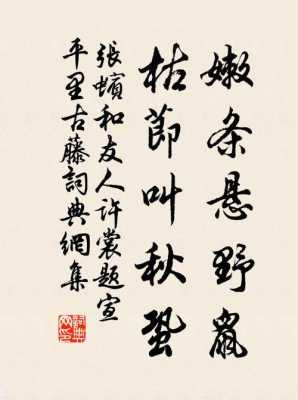 嫩条悬野鼠
枯节叫秋蛩
张蠙和友人许裳题宣
平里古藤词典网集